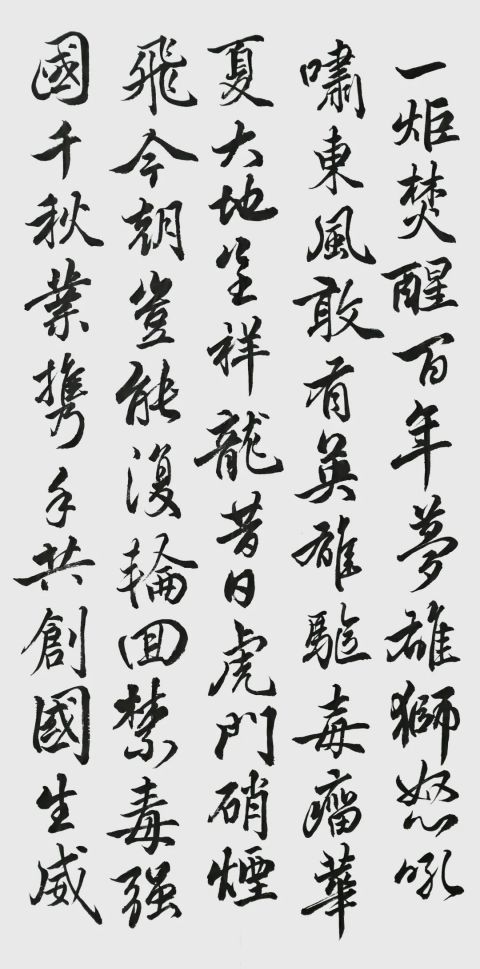 一炬焚醒百年夢雄獅怒吼
嘯東風敢有英雄驅毒瘤華
夏大地呈祥龍昔日虎門硝煙
飛今朝豈能復輪回禁毒强
國千秋業携手共創國生威